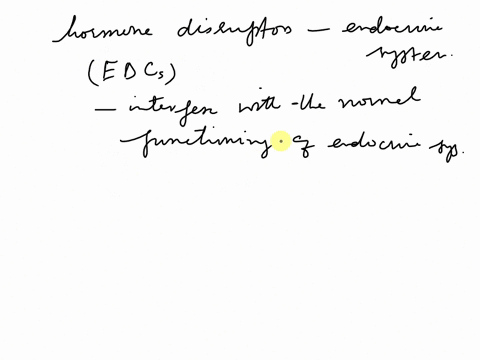 hormone disruptors — endocrine
system.
(EDCs)
— interfere with the normal
functioning of endocrine sys.